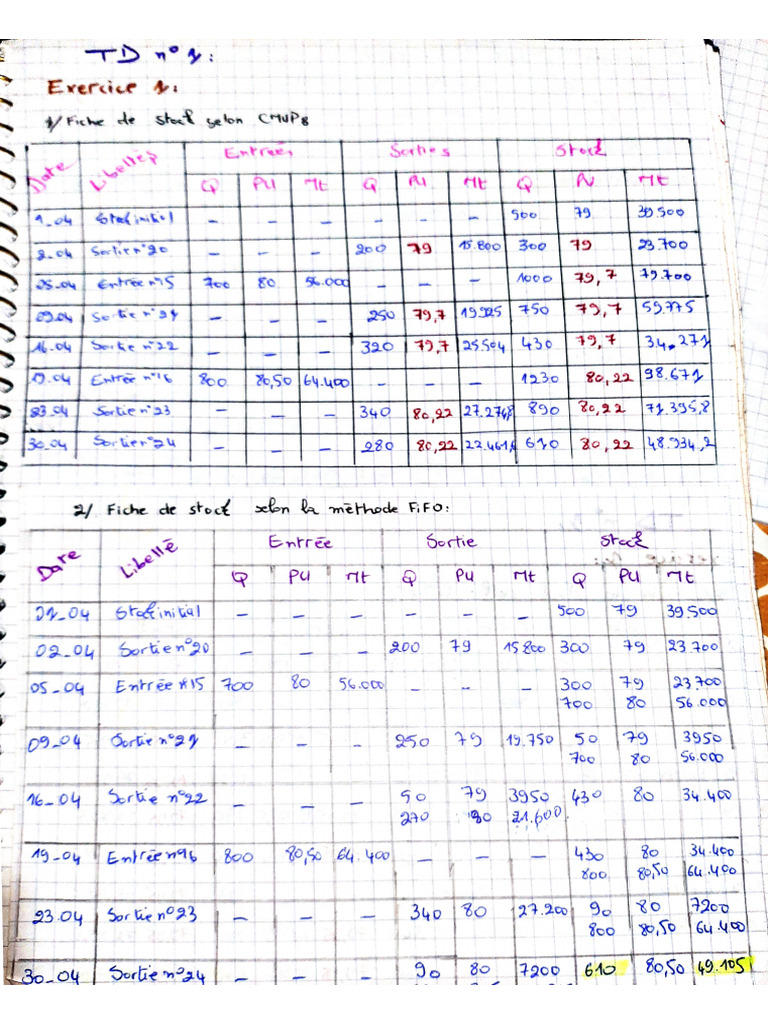 TD n° 1:
Exercice 1:
1/ Fiche de stock selon CMUP:
Date Libellés Entrées Sorties Stock
Q PU Mt Q PU Mt Q PU Mt
1.04 Stock initial - - - - - - 500 79 39.500
2.04 Sortie n°20 - - - 200 79 15.800 300 79 23.700
05.04 Entrée n°15 700 80 56.000 - - - 1000 79,7 79.700
09.04 Sortie n°21 - - - 250 79,7 19.925 750 79,7 59.775
16.04 Sortie n°22 - - - 320 79,7 25.504 430 79,7 34.271
19.04 Entrée n°16 800 80,50 64.400 - - - 1230 80,22 98.671
23.04 Sortie n°23 - - - 340 80,22 27.274,8 890 80,22 71.395,8
30.04 Sortie n°24 - - - 280 80,22 22.461,6 610 80,22 48.934,2
2/ Fiche de stock selon la méthode FiFO:
Date Libellé Entrée Sortie Stock
Q PU Mt Q PU Mt Q PU Mt
01_04 Stock initial - - - - - - 500 79 39.500
02_04 Sortie n°20 - - - 200 79 15.800 300 79 23.700
05_04 Entrée n°15 700 80 56.000 - - - 300 79 23.700
700 80 56.000
09_04 Sortie n°21 - - - 250 79 19.750 50 79 3950
700 80 56.000
16_04 Sortie n°22 - - - 50 79 3950 430 80 34.400
270 80 21.600
19_04 Entrée n°16 800 80,50 64.400 - - - 430 80 34.400
800 80,50 64.400
23.04 Sortie n°23 - - - 340 80 27.200 90 80 7200
800 80,50 64.400
30_04 Sortie n°24 - - - 90 80 7200 610 80,50 49.105